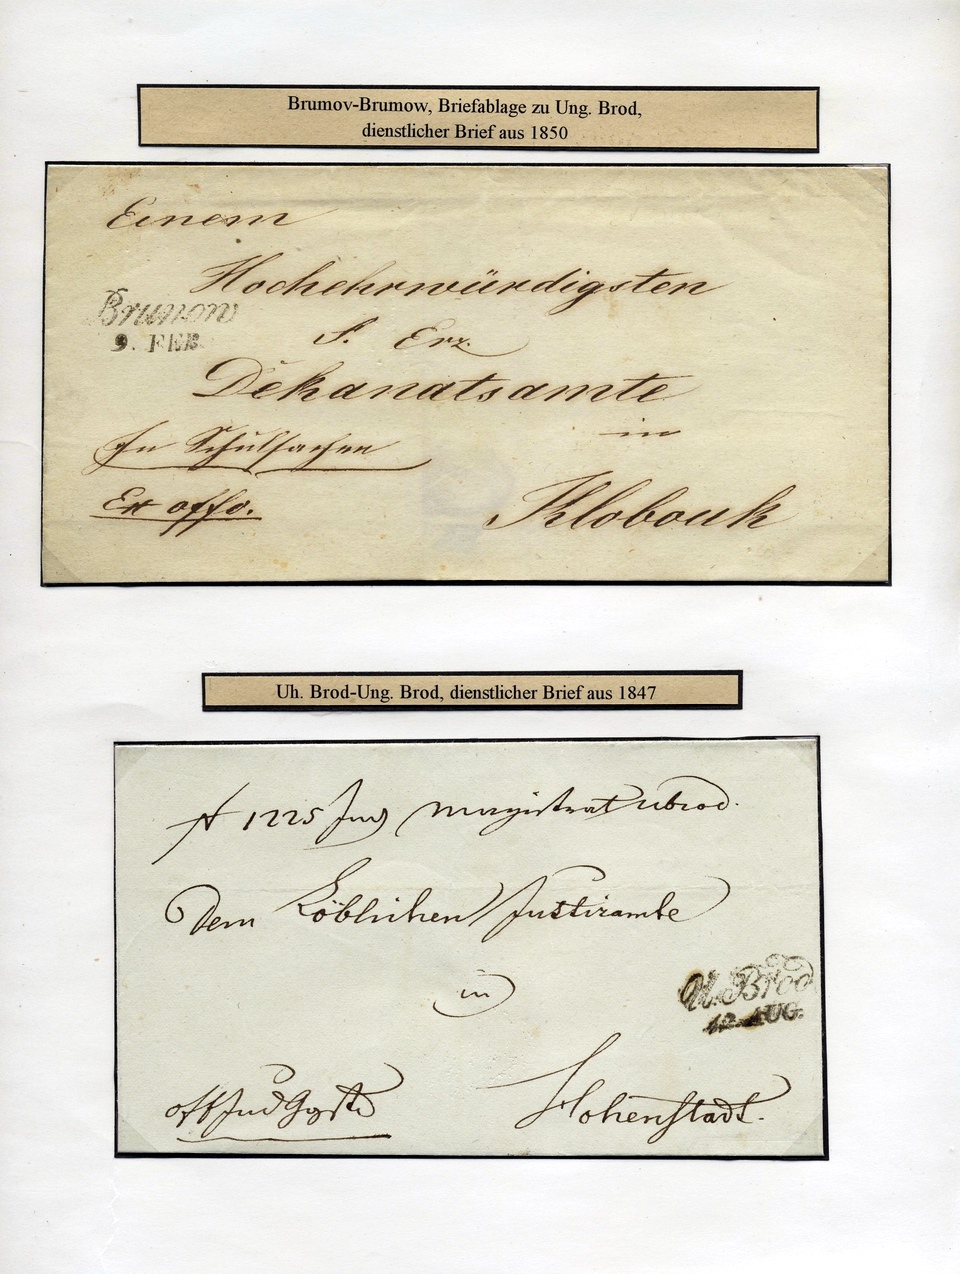 Brumov-Brumow, Briefablage zu Ung. Brod,
dienstlicher Brief aus 1850
Einem
Hochehrwürdigsten
Brumow
9. FEB.
F. Erz.
Dekanatsamte
in
In Schulsachen
Ex offo.
Klobouk
Uh. Brod-Ung. Brod, dienstlicher Brief aus 1847
1225 Jud Magistrat Ubrod.
Dem Löblichen Justizamte
in
U. Brod
12. AUG.
Hohenstadt.